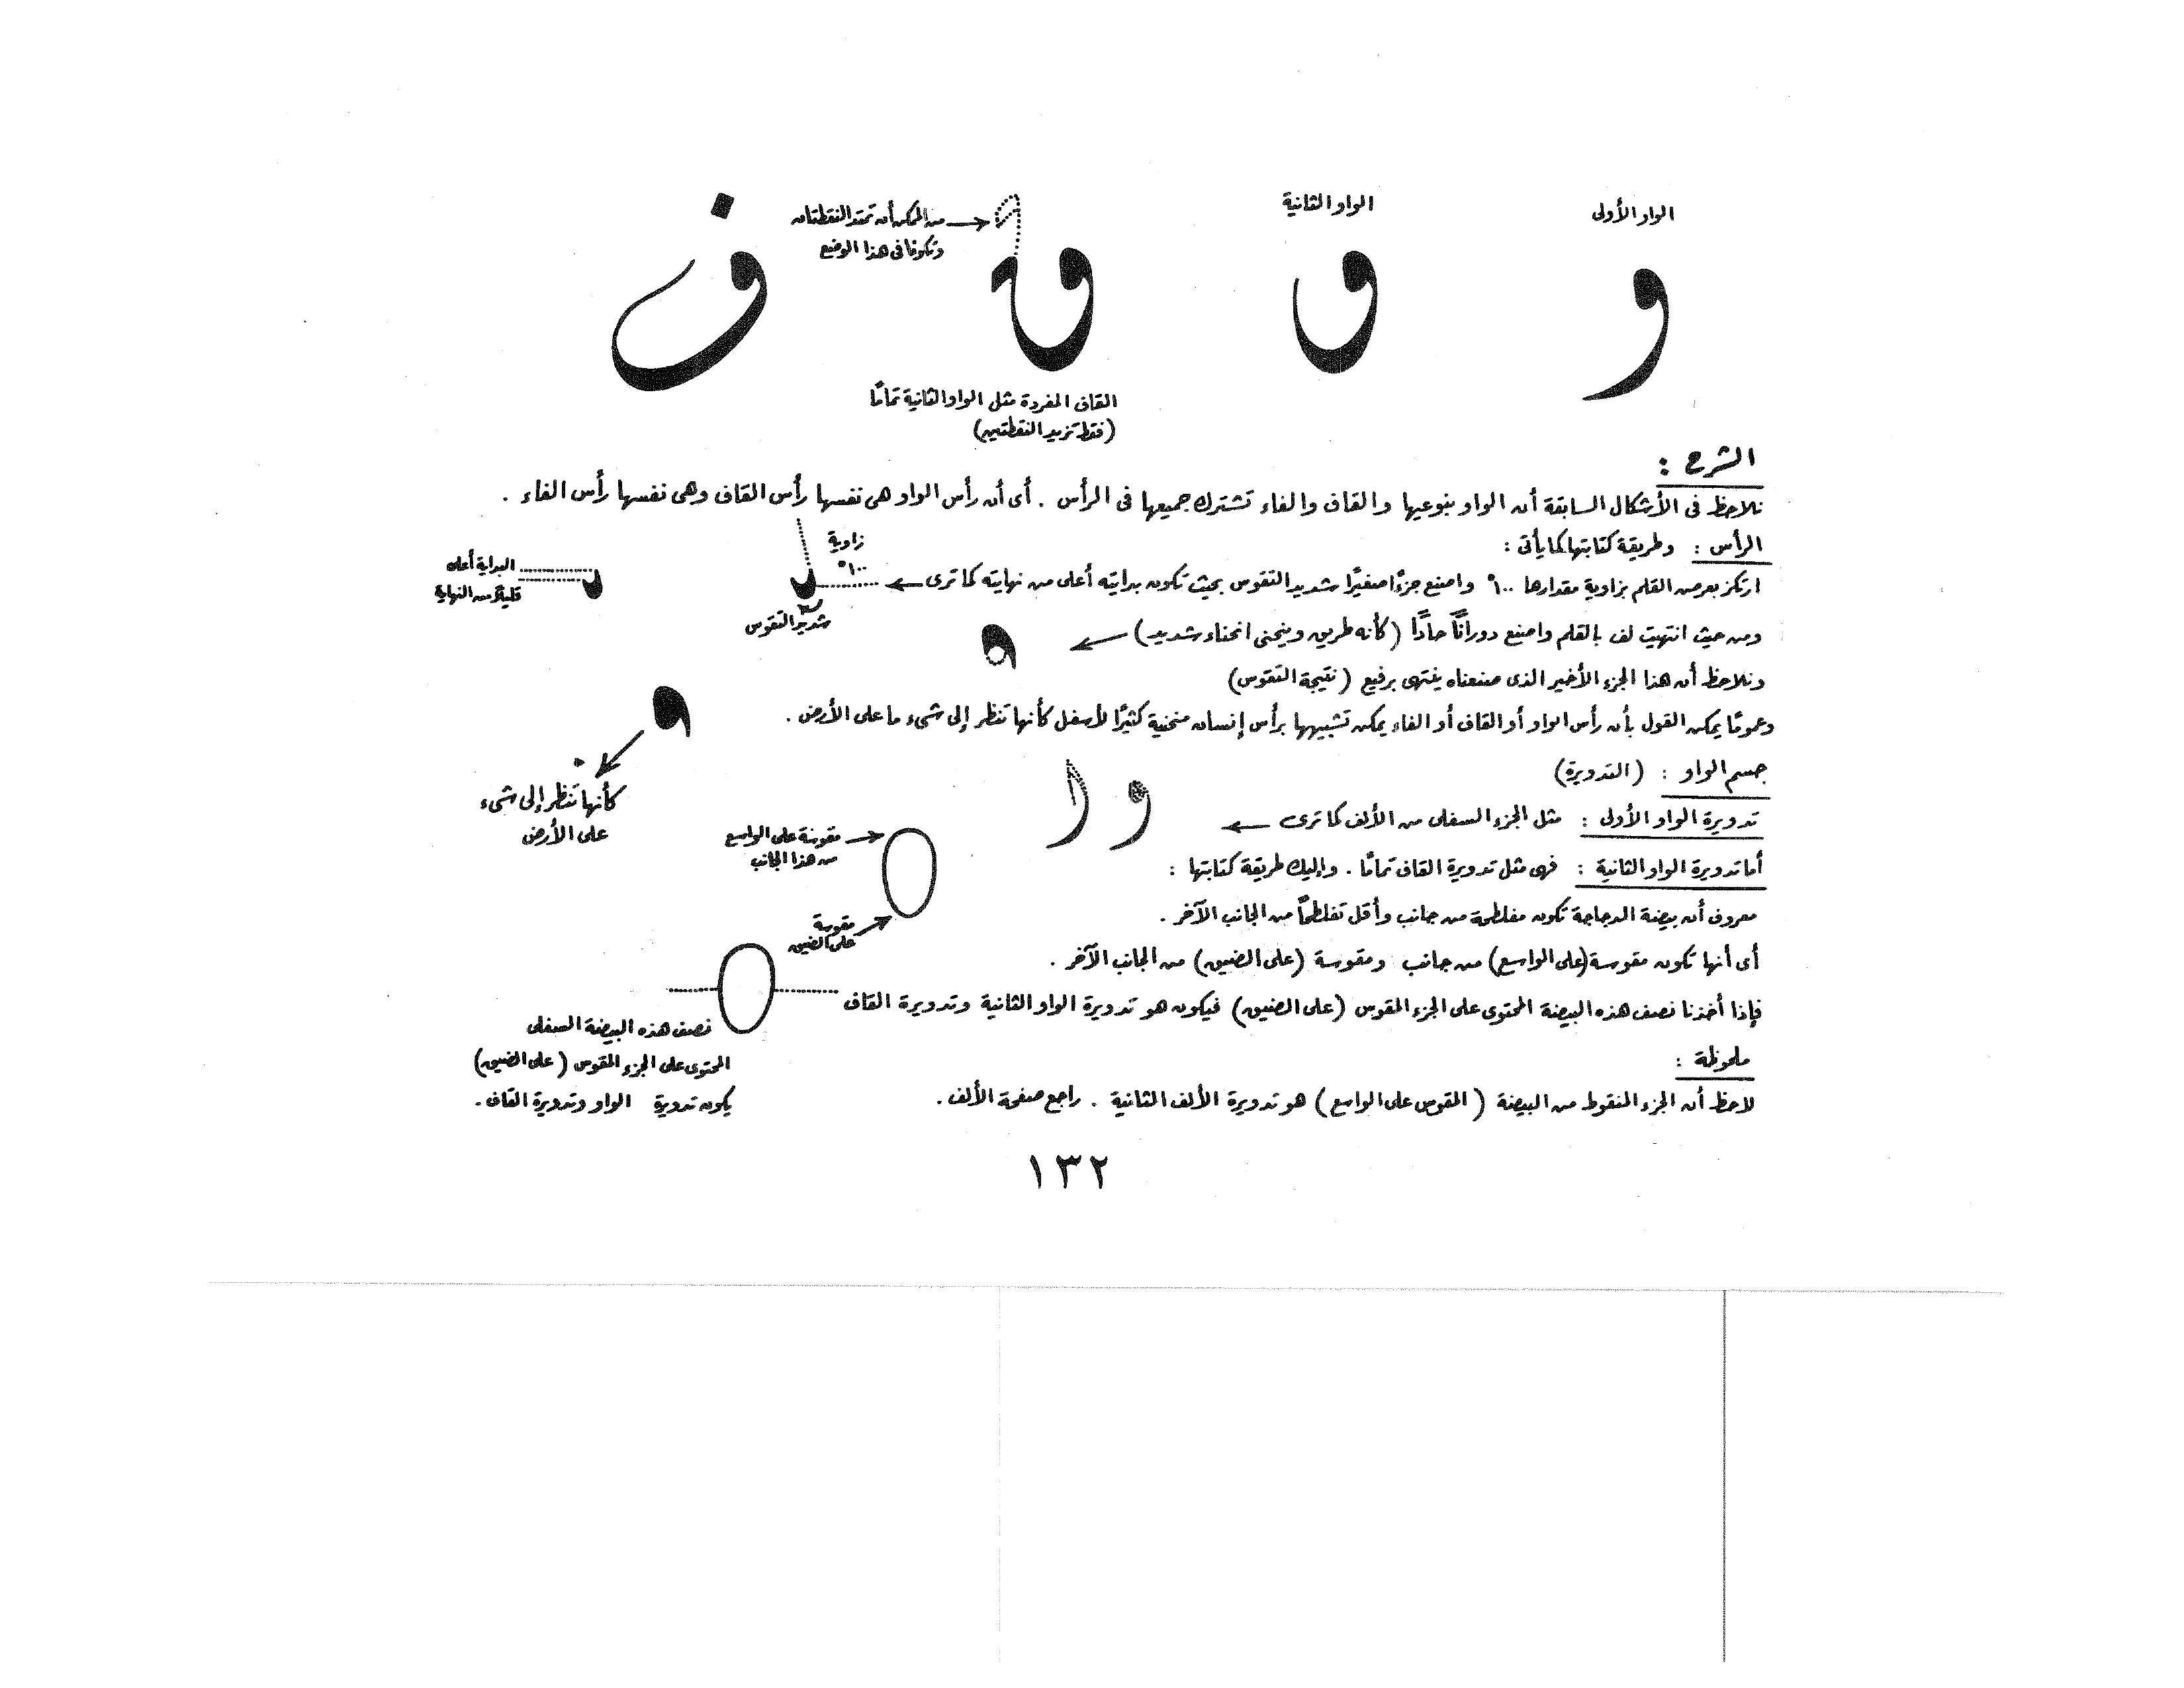 الواو الأولى
و
الواو الثانية
و
من الممكن أن تمتد النقطتان
وتكونا في هذا الوضع
ق
ف
القاف المفردة مثل الواو الثانية تمامًا
(فقط تزيد النقطتين)
الشرح :
نلاحظ فى الأشكال السابقة أن الواو بنوعيها والقاف والفاء تشترك جميعها فى الرأس . أى أن رأس الواو هى نفسها رأس القاف وهى نفسها رأس الفاء .
الرأس : وطريقة كتابتها كما يأتى :
ارتكز بعرض القلم بزاوية مقدارها ١٠٠° واصنع جزءًا صغيرًا شديد التقوس بحيث تكون بدايته أعلى من نهايته كما ترى
زاوية
١٠٠°
شديد التقوس
البداية أعلى
قليلًا من النهاية
ومن حيث انتهيت لف بالقلم واصنع دورانًا حادًا (كأنه طريق وينحنى انحناء شديد)
ونلاحظ أن هذا الجزء الأخير الذى صنعناه ينتهى برفيع (نتيجة التقوس)
وعمومًا يمكن القول بأن رأس الواو أو القاف أو الفاء يمكن تشبيهها برأس إنسان منحنية كثيرًا لأسفل كأنها تنظر إلى شىء ما على الأرض .
كأنها تنظر إلى شىء
على الأرض
جسم الواو : (التدويرة)
تدويرة الواو الأولى : مثل الجزء السفلى من الألف كما ترى
و ا
أما تدويرة الواو الثانية : فهى مثل تدويرة القاف تمامًا . وإليك طريقة كتابتها :
مقوسة على الواسع
من هذا الجانب
مقوسة
على الضيق
معروف أن بيضة الدجاجة تكون مفلطحة من جانب وأقل تفلطحًا من الجانب الآخر .
أى أنها تكون مقوسة (على الواسع) من جانب ومقوسة (على الضيق) من الجانب الآخر .
فإذا أخذنا نصف هذه البيضة المحتوى على الجزء المقوس (على الضيق) فيكون هو تدويرة الواو الثانية وتدويرة القاف
نصف هذه البيضة السفلى
المحتوى على الجزء المقوس (على الضيق)
يكون تدويرة الواو وتدويرة القاف .
ملحوظة :
لاحظ أن الجزء المنقوط من البيضة (المقوس على الواسع) هو تدويرة الألف الثانية . راجع صفحة الألف .
١٣٢